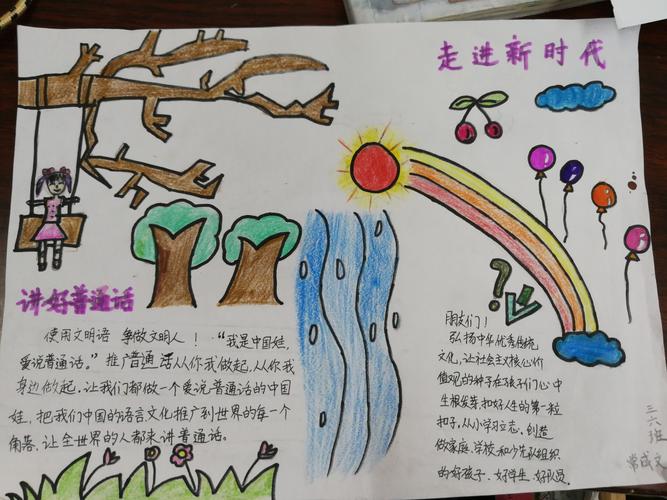 走进新时代
讲好普通话
使用文明语 争做文明人！“我是中国娃，
爱说普通话。”推广普通话从你我做起，从你我
身边做起，让我们都做一个爱说普通话的中国
娃，把我们中国的语言文化推广到世界的每一个
角落、让全世界的人都来讲普通话。
朋友们！
弘扬中华优秀传统
文化，让社会主义核心价
值观的种子在孩子们心中
生根发芽，扣好人生的第一粒
扣子，从小学习立志、创造
做家庭、学校和少先队组织
的好孩子、好学生、好队员。
三六班
常成文